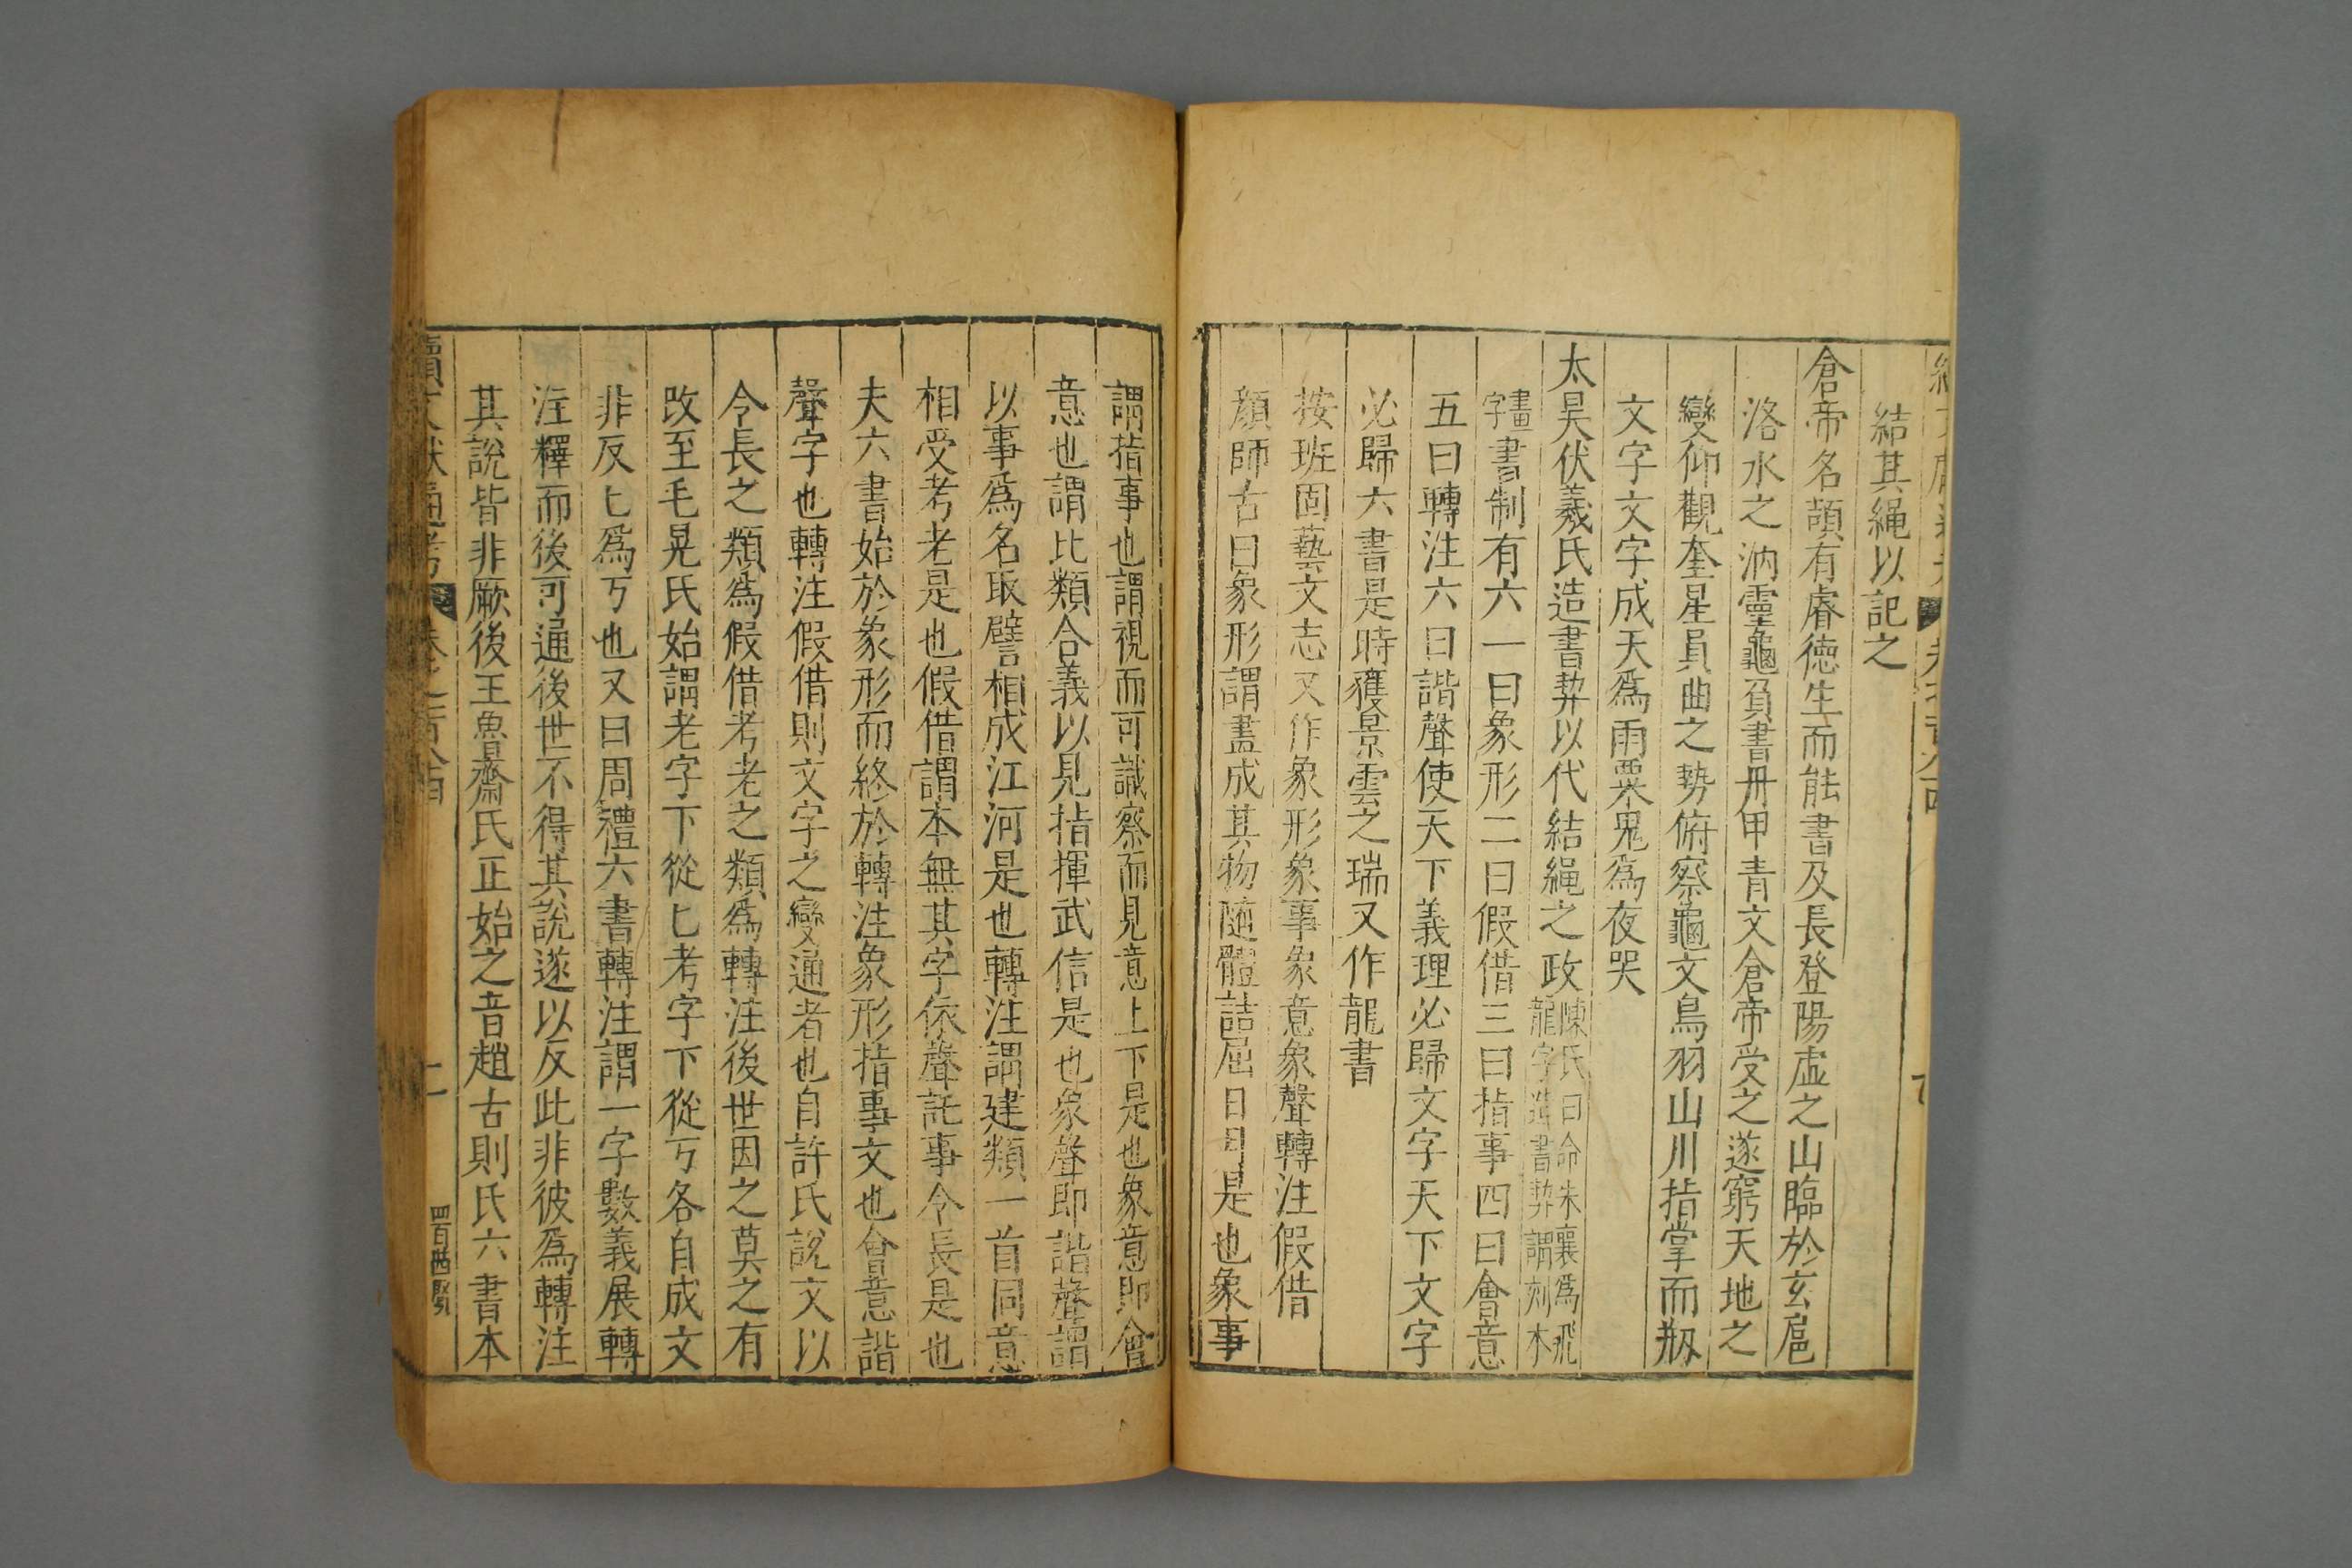 結其繩以記之
倉帝名頡有睿德生而能書及長登陽虛之山臨於玄扈
洛水之汭靈龜負書丹甲青文倉帝受之遂窮天地之
變仰觀奎星員曲之勢俯察龜文鳥羽山川指掌而剏
文字文字成天為雨粟鬼為夜哭
太昊伏羲氏造書契以代結繩之政陳氏曰命朱襄為飛龍字造書契謂刻木
畫字書制有六一曰象形二曰假借三曰指事四曰會意
五曰轉注六曰諧聲使天下義理必歸文字天下文字
必歸六書是時獲景雲之瑞又作龍書
按班固藝文志又作象形象事象意象聲轉注假借
顏師古曰象形謂畫成其物隨體詰屈日月是也象事
謂指事也謂視而可識察而見意上下是也象意即會
意也謂比類合義以見指揮武信是也象聲即諧聲謂
以事為名取譬相成江河是也轉注謂建類一首同意
相受考老是也假借謂本無其字依聲託事令長是也
夫六書始於象形而終於轉注象形指事文也會意諧
聲字也轉注假借則文字之變通者也自許氏說文以
令長之類為假借考老之類為轉注後世因之莫之有
改至毛晃氏始謂老字下從匕考字下從丂各自成文
非反匕為丂也又曰周禮六書轉注謂一字數義展轉
注釋而後可通後世不得其說遂以反此非彼為轉注
其說皆非厥後王魯齋氏正始之音趙古則氏六書本
續文獻通考 卷之一百八十四 二